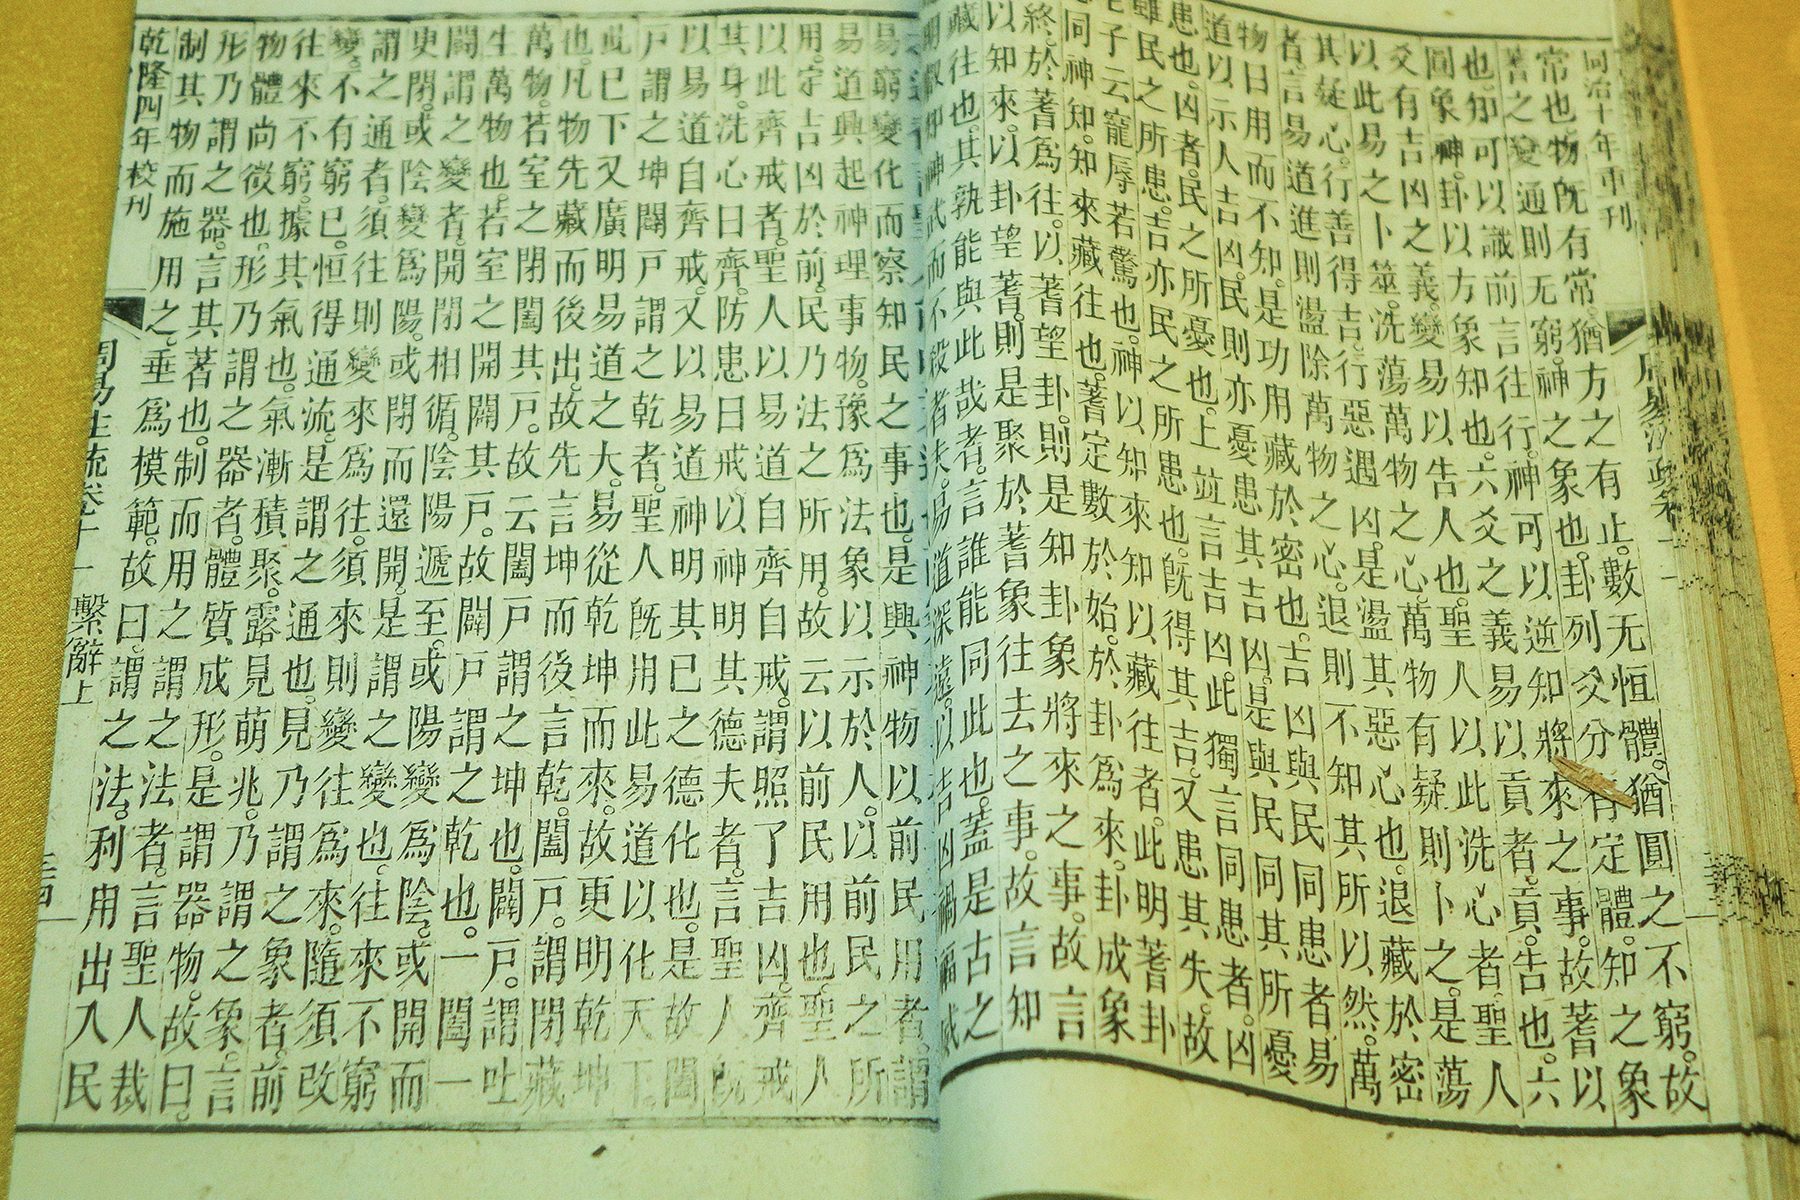 同治十年重刊
常也物既有常。猶方之有止。數无恒體。猶圓之不窮。故
蓍之變通則无窮。神之象也。卦列爻分有定體。知之象
也。知可以識前言往行。神可以逆知將來之事。故蓍以
圓象神。卦以方象知也。六爻之義易以貢者。貢。告也。六
爻有吉凶之義變易以告人也。聖人以此洗心者聖人
以此易之卜筮。洗蕩萬物之心。萬物有疑則卜之。是蕩
其疑心。行善得吉。行惡遇凶。是盪其惡心也。退藏於密
者。言易道進則盪除萬物之心。退則不知其所以然。萬
物日用而不知。是功用藏於密也。吉凶與民同患者易
道以示人吉凶。民則亦憂患其吉凶。是與民同其所憂
患也。凶者。民之所憂也。上竝言吉凶。此獨言同患者。凶
雖民之所患。吉亦民之所患也。既得其吉。又患其失。故
老子云寵辱若驚也。神以知來知以藏往者。此明蓍卦
同神知。知來藏往也。蓍定數於始。於卦爲來。卦成象
終。於蓍爲往。以蓍望卦。則是知卦象將來之事。故言
以知來。以卦望蓍。則是聚於蓍象往去之事。故言知
藏往也。其孰能與此哉者。言誰能同此也。蓋是古之
明叡知神武而不殺者夫。易道深遠。以吉凶禍福威
易窮變化而察知民之事也。是興神物以前民用者。謂
易道興起神理事物。豫爲法象以示於人。以前民之所
用。定吉凶於前。民乃法之所用。故云以前民用也。聖人
以此齊戒者。聖人以易道自齊自戒。謂照了吉凶。齊戒
其身。洗心曰齊。防患曰戒。以神明其德夫者。言聖人既
以易道自齊戒。又以易道神明其己之德化也。是故闔
戶謂之坤闢戶謂之乾者。聖人既用此易道以化天下
此已下又廣明易道之大。易從乾坤而來。故更明乾坤
也。凡物先藏而後出。故先言坤而後言乾。闔戶。謂閉藏
萬物。若室之閉闔其戶。故云闔戶謂之坤也。闢戶。謂吐
生萬物也。若室之開闢其戶。故闢戶謂之乾也。一闔一
闢謂之變者。開閉相循。陰陽遞至。或陽變爲陰。或開而
更閉。或陰變爲陽。或閉而還開。是謂之變也。往來不窮
謂之通者。須往則變來爲往。須來則變往爲來。隨須改
變。不有窮已。恒得通流。是謂之通也。見乃謂之象者。前
往來不窮。據其氣也。氣漸積聚。露見萌兆。乃謂之象。言
物體尚微也。形乃謂之器者。體質成形。是謂器物。故曰
形乃謂之器。言其著也。制而用之謂之法者。言聖人裁
制其物而施用之。垂爲模範。故曰謂之法。利用出入民
乾隆四年校刊 周易注疏卷十一 繫辭上